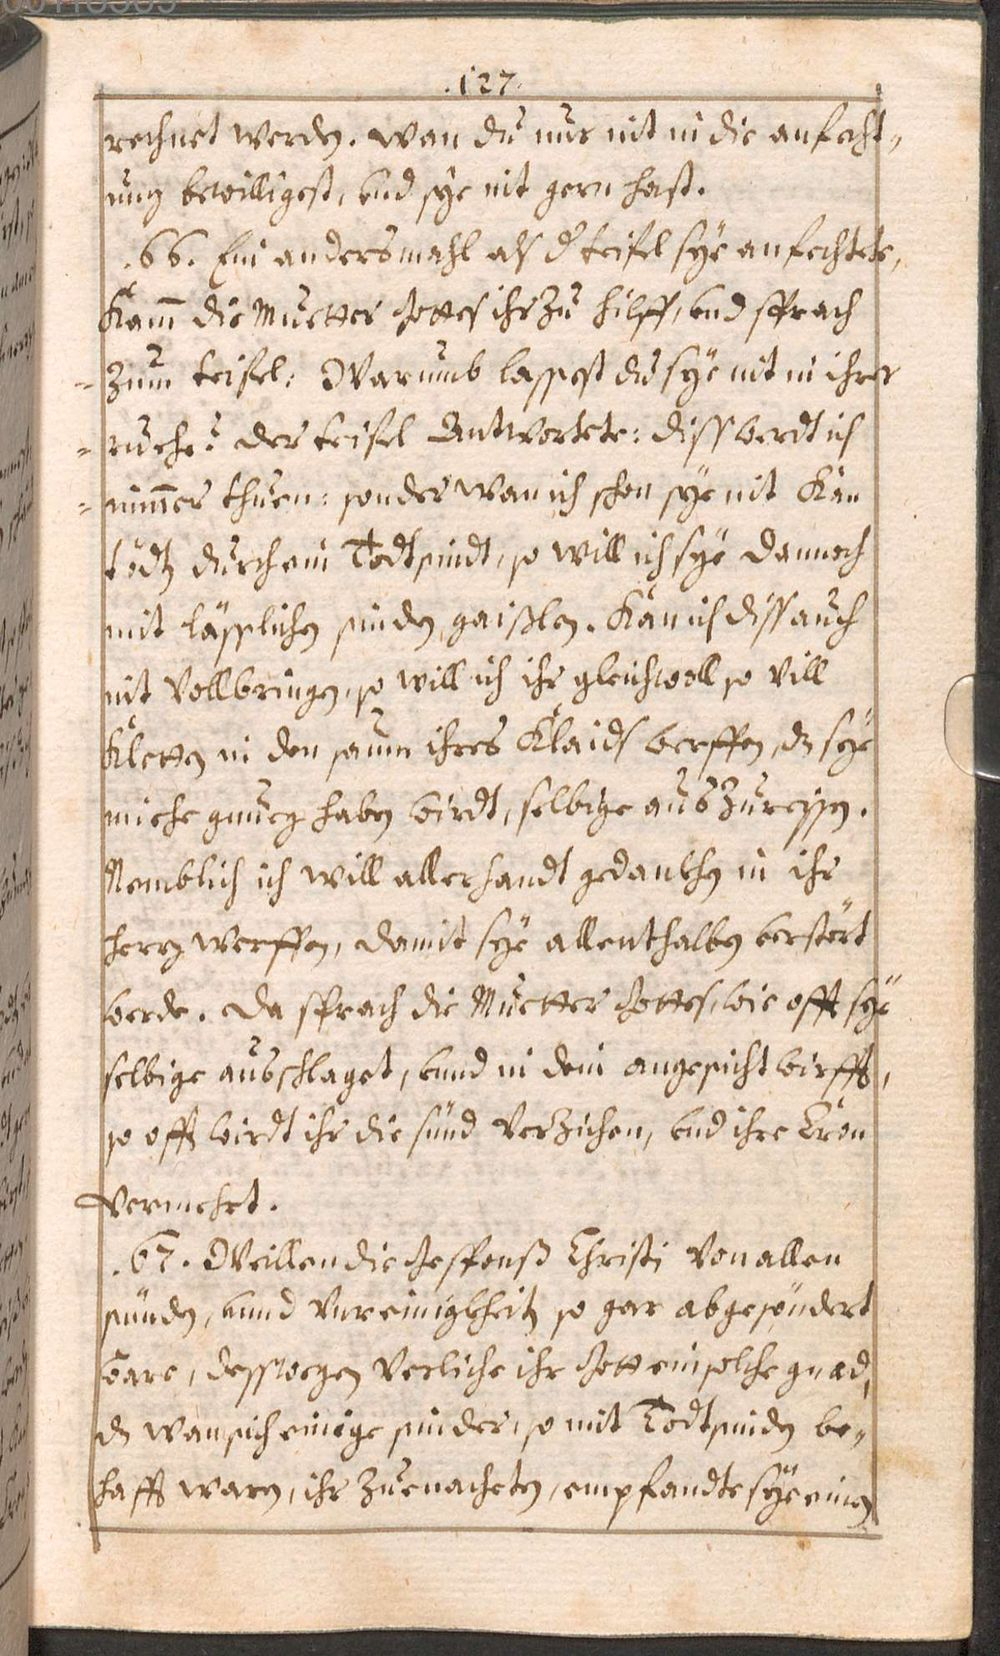 .127.
rechnet werden. wan du nur nit in die anfecht„
ung bewilligest, und sÿe nit gern hast.
.66. Ein andersmahl als dʳ teifel sÿe anfechtete,
Kam̄ die Muetter Gottes ihr zu hilff, und sprach
zum teifel: Warumb lassest du sÿe nit in ihrer
ruehe? der teifel Antwortete: diss werdt ich
nim̄er thuen: sonder wan ich schon sÿe nit Kan
tödtn durch ein Todtsindt, so will ich sÿe dannoch
mit lässlichen sinden gaißlen. Kan ich diss auch
nit vollbringen, so will ich ihr gleichwoll so vill
Kletten in den saum ihres Klaids werffen, ds sÿe
miehe gnueg haben wirdt, selbige auszureissen.
Nemblich ich will allerhandt gedankhen in ihr
hertz werffen, damit sÿe allenthalben verstört
werde. da sprach die Muetter Gottes, wie offt sÿe
selbige ausschlaget, unnd in dein angesicht wirfft,
so offt wirdt ihr die sünd verzichen, und ihre Cron
vermehrt.
.67. Weillen die Gesponß Christi von allen
sünden, unnd Unreinigkheiten so gar abgesöndert
ware, desswegen verliche ihr Gott ein solche gnad,
ds wan sich einige sinder, so mit Todtsinden be„
hafft waren, ihr zuenacheten, empfandte sÿe einen